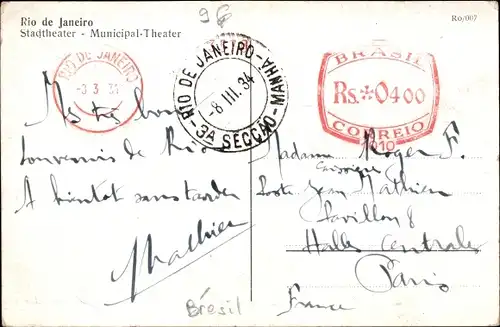 96
Rio de Janeiro
Stadtheater - Municipal-Theater
Ro/007
RIO DE JANEIRO
-8 3 34
RIO DE JANEIRO-MANHA
-8 III. 34
-3A SECCÃO-
BRASIL
Rs. 0400
CORREIO
010
Mes très bons
souvenirs de Rio
A bientôt sans tarder
Mathieu
Madame Roger F.
Poste Jean Mathieu
Pavillon 8
Halles Centrales
Paris
France
Brésil